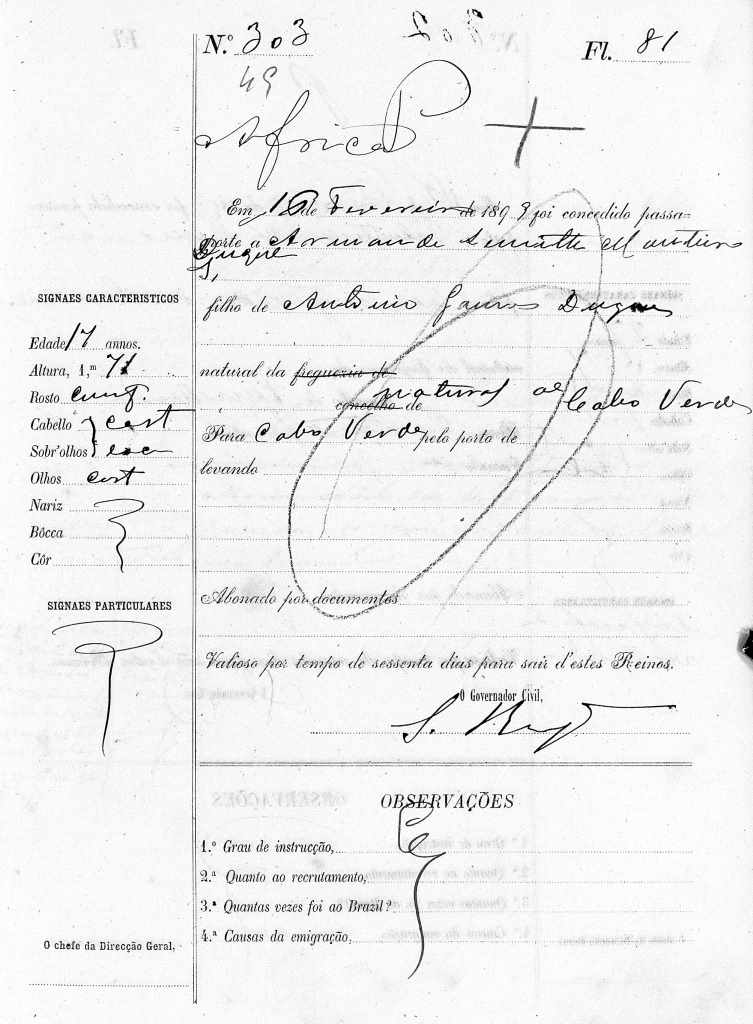 N.º 303 Fl. 81
49
Africa
Em 16 de Fevereiro de 1899 foi concedido passa-
porte a Armando Monteiro
Duque
filho de Antonio Duque
natural da freguezia de
concelho de natural de Cabo Verde
Para Cabo Verde pelo porto de
levando
Abonado por documentos
Valioso por tempo de sessenta dias para sair d'estes Reinos.
O Governador Civil,
SIGNAES CARACTERISTICOS
Edade 17 annos.
Altura, 1,m 71
Rosto comp.
Cabello cast
Sobr'olhos esc
Olhos cast
Nariz
Bôcca
Côr
SIGNAES PARTICULARES
O chefe da Direcção Geral,
OBSERVAÇÕES
1.º Grau de instrucção,
2.ª Quanto ao recrutamento,
3.ª Quantas vezes foi ao Brazil?
4.ª Causas da emigração,